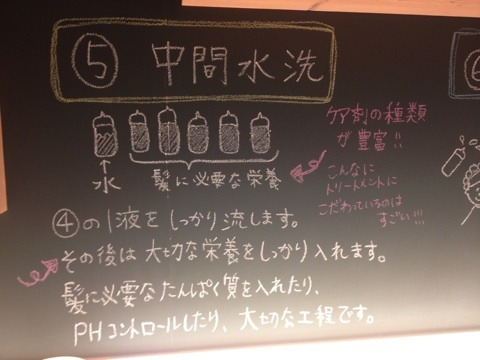 ⑤ 中間水洗
水
髪に必要な栄養
ケア剤の種類
が豊富!!
こんなに
トリートメントに
こだわっているのは
すごい!!!
④の1液をしっかり流します。
その後は大切な栄養をしっかり入れます。
髪に必要なたんぱく質を入れたり、
PHコントロールしたり、大切な工程です。